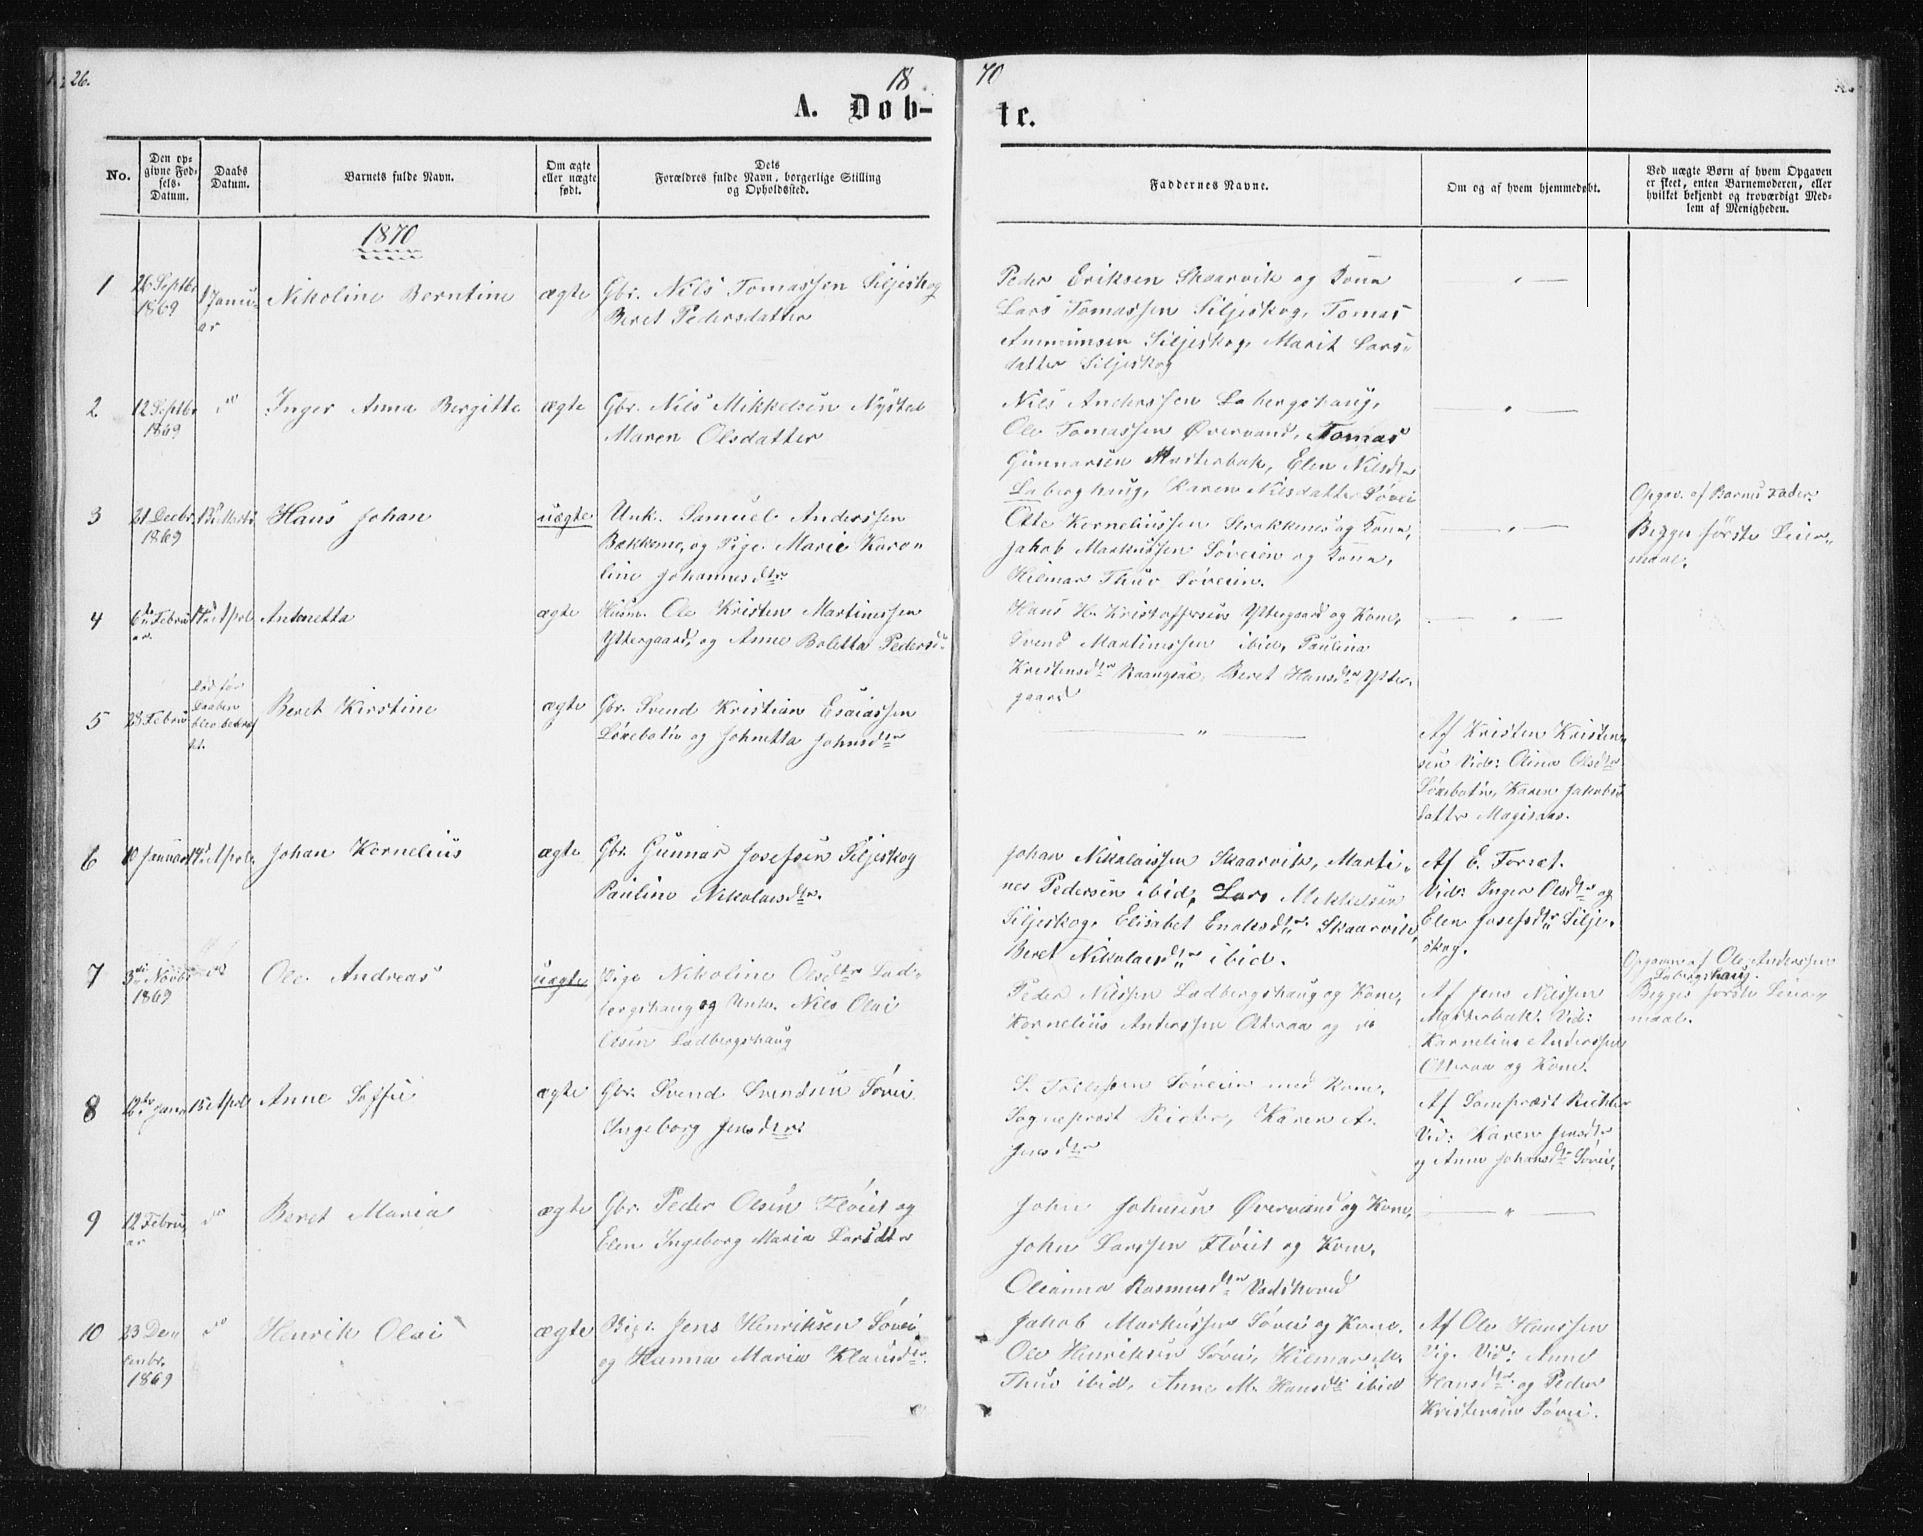 26.
18 70
A. Døb-te.
No.
Den op-
givne Fød-
sels-
Datum.
Daabs
Datum.
Barnets fulde Navn.
Om ægte
eller uægte
født.
Dets
Forældres fulde Navn, borgerlige Stilling
og Opholdssted.
Faddernes Navne.
Om og af hvem hjemmedøbt.
Ved uægte Børn af hvem Opgaven
er skeet, enten Barnemoderen, eller
hvilket bekjendt og troværdigt Med-
lem af Menigheden.
1870
1
26 Septbr
1869
1 Janu-
ar
Nikoline Berntine
ægte
Gbr. Nils Tomassen Siljeskog
Beret Pedersdatter
Peder Eriksen Skaarvik og Kona
Lars Tomassen Siljeskog, Tomas
Siljeskog, Marit Lars-
datter Siljeskog
2
12 Septbr
1869
do
Inger Anna Bergitte
ægte
Gbr. Nils Mikkelsen Nystad
Maren Olsdatter
Nils Anderssen Labergshaug,
Ole Tomassen Øvervand, Tomas
Gunnarsen Masterbak, Elen Nilsdtr
Laberghaug, Karen Nilsdatter Søvei
3
21 Decbr
1869
13 Marts
Hans Johan
uægte
Unk. Samuel Anderssen
Bakkene, og Pige Marie Karo-
line Johannesdtr
Otte Korneliussen Strokkenes og Kona,
Jakob Markussen Søveien og Kona,
Hilmar Thuv Søveien.
Opgav. af Barnets Fader.
Begges første Leier-
maal.
4
6te Febru
ar.
14de April
Antonetta
ægte
Husm. Ole Kristen Martinussen
Yttergaard, og Anne Boletta Pedersd
Hans H. Kristoffersen Yttergaard og Kone,
Svend Martinussen ibid, Paulina
Kristensdtr Raangsak, Beret Hansdtr Ytter-
gaard
5
28 Febru
Død før
Daaben
blev bekræf
tet.
Beret Kirstine
ægte
Gbr. Svend Kristian Esaiassen
Løvebotn og Johnetta Johnsdtr
Af Kristen Kristen-
sen Vid: Olina Olsdtr
Løvebotn, Karen Jakobs-
datter Magisaas.
6
10 Januar
14de April
Johan Kornelius
ægte
Gbr. Gunnar Josefsen Siljeskog
Pauline Nikolaisdtr.
Johan Nikolaissen Skaarvik, Marti-
nes Pedersen ibid, Lars Mikkelsen
Siljeskog, Elisabet Enoksdtr. Skaarvik,
Beret Nikolaisdtr ibid.
Af E. Forset.
Vid: Inger Olsdtr og
Elen Josefsdtr Silje-
skog.
7
3die Novbr
1869
do
Ole Andreas
uægte
Pige Nikoline Olsdtr Lad-
bergshaug og Unk. Nils Olai
Olsen Ladbergshaug
Peder Nilssen Ladbergshaug og Kone,
Kornelius Anderssen Otteraa og do
Af Jens Nilssen
Masterbak. Vid:
Kornelius Anderssen
Otteraa og Kone.
Opgaven af Ole Anderssen
Labergshaug.
Begges første Leier-
maal.
8
12te Janu
15de April
Anne Soffie
ægte
Gbr. Svend Svendsen Søvei
Ingeborg Jensdtr.
S. Tollefsen Søveien med Kone,
Sogneprest Ricter, Karen A.
Jensdtr
Af Sompræst Richter
Vid: Karen Jensdtr
og Anne Johansdtr Søvei,
9
12 Febru
ar
do
Beret Maria
ægte
Gbr. Peder Olsen Fløiet og
Elen Ingeborg Maria Larsdtr
John Johnsen Øvervand og Kone,
John Larssen Fløiet og Kone,
Olianna Rasmusdtr Vadshoved
10
23 De-
cembr.
1869
do
Henrik Olai
ægte
Bigs. Jens Henriksen Søvei,
og Hanna Maria Klausdtr.
Jakob Markussen Søvei og Kone,
Ole Henriksen Søvei, Hilmar K.
Thuv ibid, Anne M. Hansdtr ibid
Af Ole Hanssen
Vig. Vid: Anne
Hansdtr. og Peder
Kristensen Søvei.